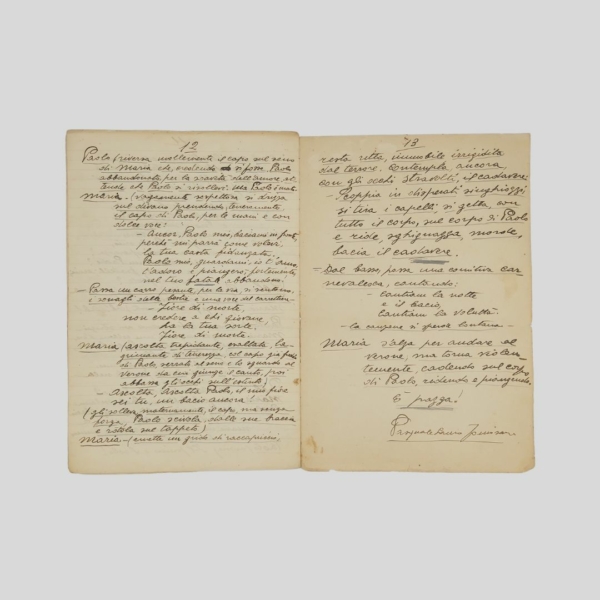 12
Paolo (riversa mollemente il capo sul seno
di Maria che, credendo si fosse Paolo
abbandonato per la dell'amore, at-
tende che Paolo si risollevi. Ma Paolo è morto.
Maria (vagamente sospettosa si drizza
sul divano prendendo teneramente
il capo di Paolo, per le mani e con
dolce voce:
- Ancor, Paolo mio, baciami in fronte,
perchè mi parrà come volar.
la tua casta
Paolo mio, guardami, io t'amo,
t'adoro e piangerò, fortemente
nel tuo fatal abbandono.
- Passa un carro pesante per la via, si sentono
i sonagli della bestia e una voce del carrettier -
- fiore di morte,
non credere a chi giovane
ha la tua sorte
fiore di morte.
Maria (ascolta trepidante, esaltata, la-
grimante di tenerezza, col capo già freddo
di Paolo serrato al seno e lo sguardo al
verone da cui giunge il canto, poi
abbassa gli occhi sull'estinto)
- Ascolta, Ascolta, Paolo, il mio fiore
sei tu, un bacio ancora!
(gli solleva maternamente il capo ma senza
forza, Paolo scivola dalle sue braccia
e rotola sul tappeto)
Maria - (emette un grido di raccapriccio,
13
resta ritta, immobile irrigidita
dal terrore, contempla ancora,
con gli occhi stradolti, il cadavere;
- Scoppia in disperati singhiozzi
si tira i capelli, si getta, con
tutto il corpo, sul corpo di Paolo
e ride, sghignazza, morde,
bacia il cadavere.
- Dal basso passa una comitiva car-
nevalesca, cantando:
- Cantiam la notte
e il bacio,
Cantiam la voluttà.
- la canzone si sperde lontana -
Maria s'alza per andare al
verone, ma torna violen-
temente, cadendo sul corpo
di Paolo, ridendo e piangendo.
È pazza!